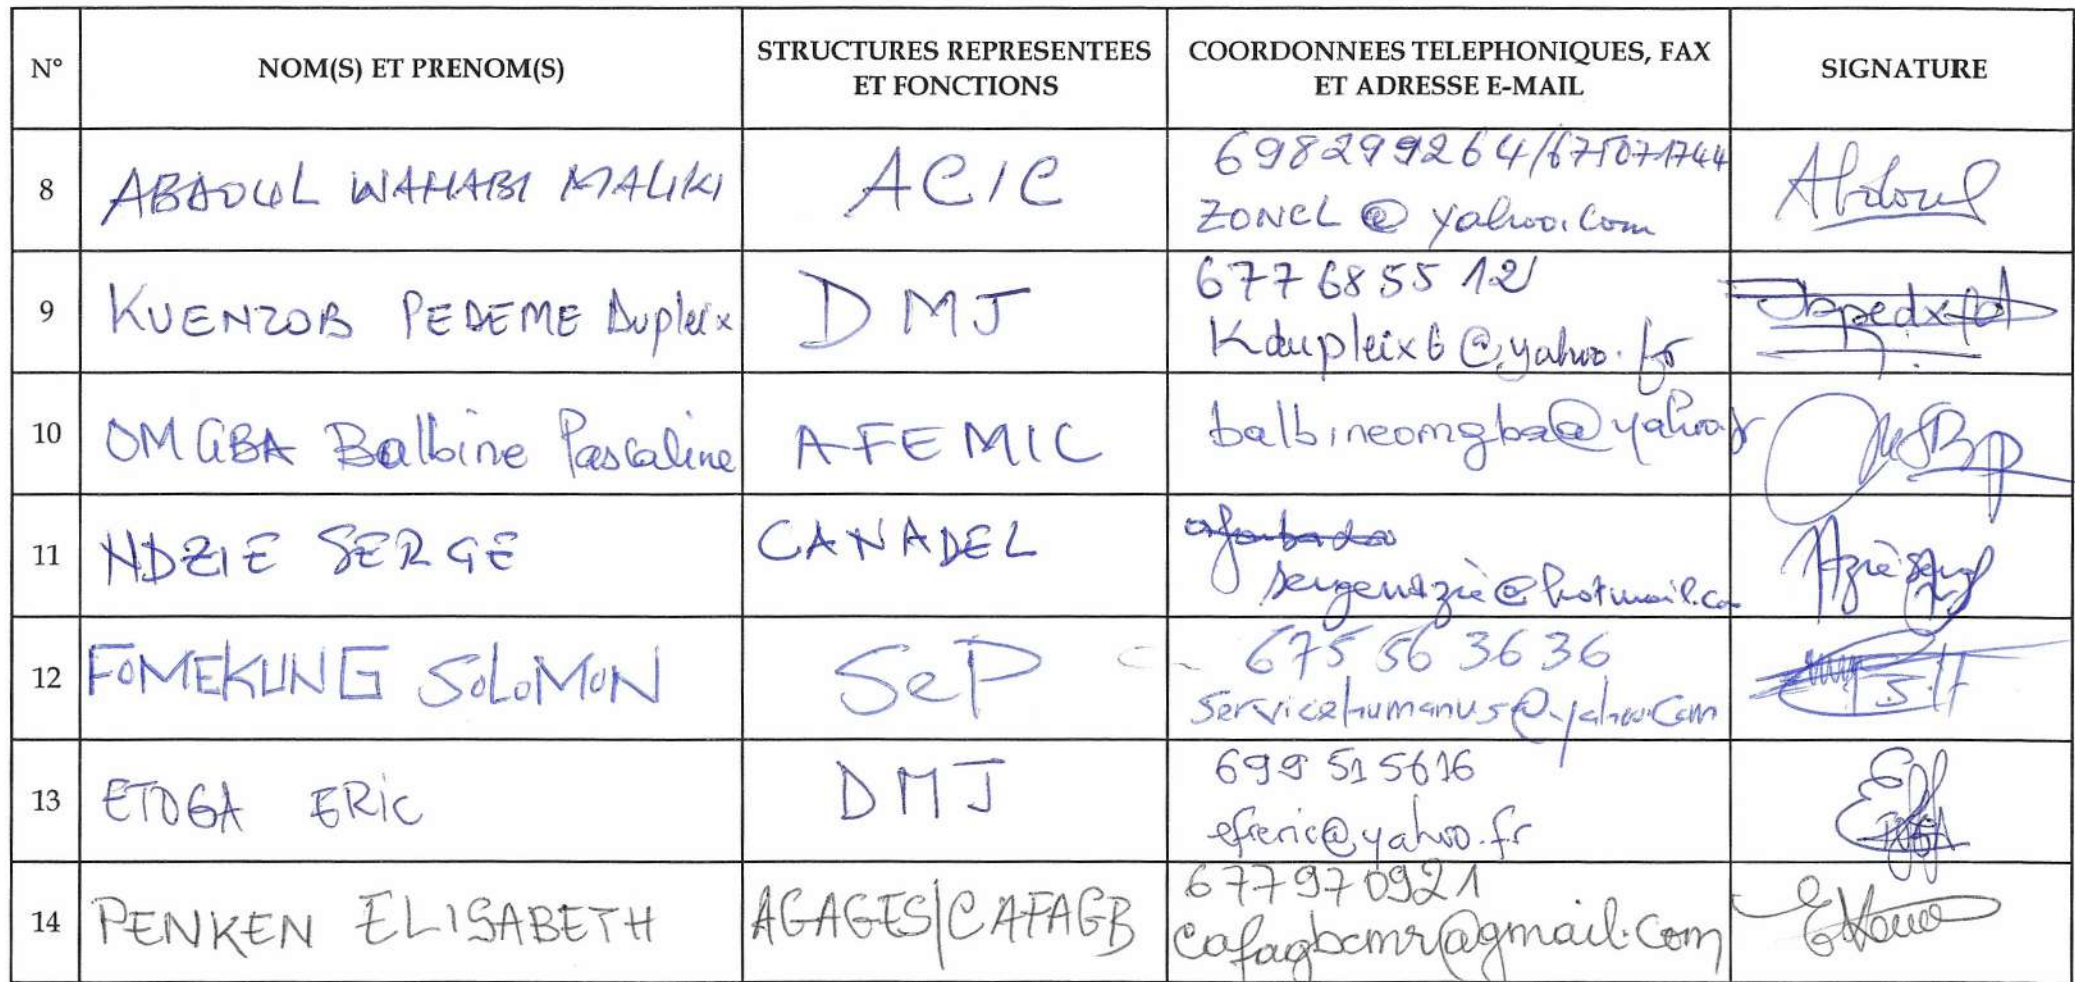 N° NOM(S) ET PRENOM(S) STRUCTURES REPRESENTEES ET FONCTIONS COORDONNEES TELEPHONIQUES, FAX ET ADRESSE E-MAIL SIGNATURE
8 ABDOUL WAHABI MALIKI ACIC 698299264/675071744
ZONCL @ yahoo.com
9 KUENZOB PEDEME Dupleix DMJ 677685512/
Kdupleix6@yahoo.fr
10 OMGBA Balbine Pascaline AFEMIC balbineomgba@yahoo.fr
11 NDZIE SERGE CANADEL
sergendzie@hotmail.co
12 FOMEKUNG SOLOMON SeP 675 56 36 36
servicehumanus@yahoo.com
13 ETOGA ERIC DMJ 699 51 5616
eferic@yahoo.fr
14 PENKEN ELISABETH AGAGES/CAFAGB 677970921
cafagbcmr@gmail.com